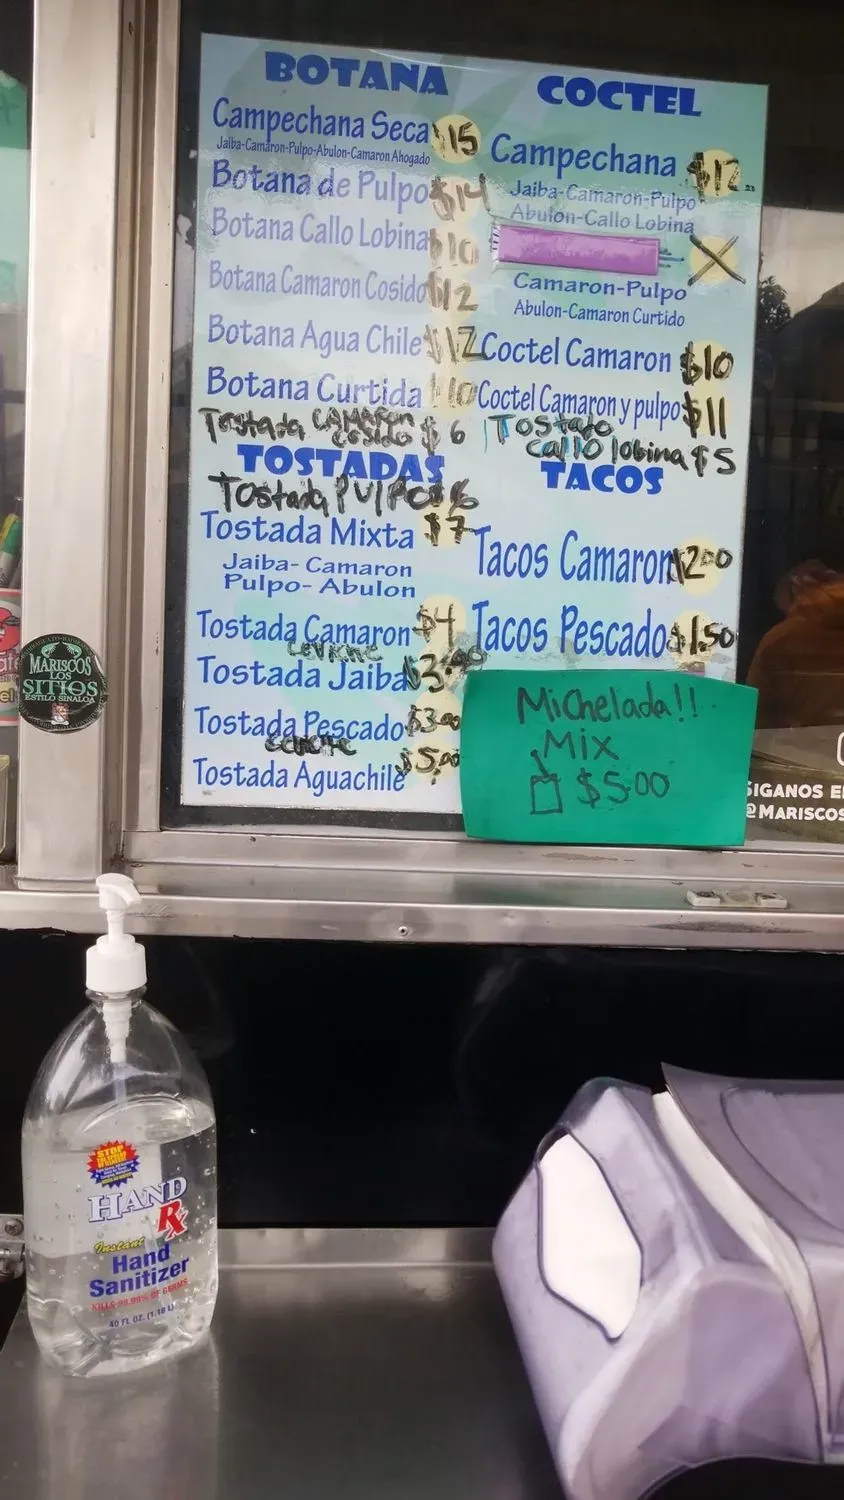 BOTANA
Campechana Seca $15
Jaiba-Camaron-Pulpo-Abulon-Camaron Ahogado
Botana de Pulpo $14
Botana Callo Lobina $10
Botana Camaron Cosido $12
Botana Agua Chile $12
Botana Curtida $10
Tostada CAMARON COSIDO $6
TOSTADAS
Tostada PULPO $6
Tostada Mixta $7
Jaiba- Camaron
Pulpo- Abulon
Tostada Camaron $4
ceviche
Tostada Jaiba
Tostada Pescado $3.00
ceviche
Tostada Aguachile $5.00
COCTEL
Campechana $12
Jaiba-Camaron-Pulpo
Abulon-Callo Lobina
X
Camaron-Pulpo
Abulon-Camaron Curtido
Coctel Camaron $10
Coctel Camaron y pulpo $11
Callo lobina $5
TACOS
Tacos Camaron $2.00
Tacos Pescado $1.50
Michelada!!
Mix
$5.00
SIGANOS E
@MARISCOS
MARISCOS
LOS
SITIOS
ESTILO SINALOA
STOP
HAND
Rx
Instant
Hand
Sanitizer
KILLS 99.99% OF GERMS
40 FL OZ. (1.18 L)